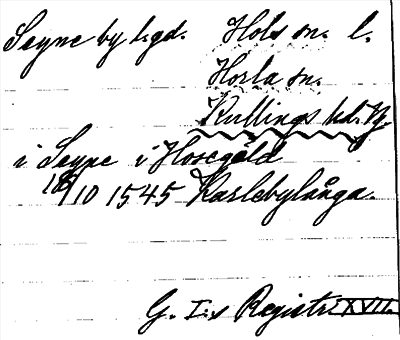 Seyne by l.gd. Hols sn. l.
Horla sn.
Kullings hd. Vg.
i Seyne i Hosegäld
18/10 1545 Karlebylånga.
G. I:s Registr. XVII.